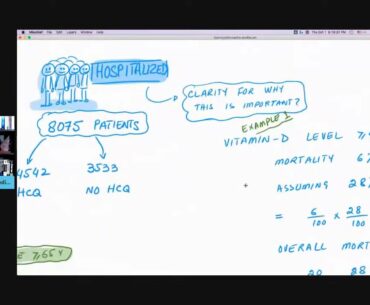 HOSPITALIZED
CLARITY FOR WHY
THIS IS IMPORTANT?
8075 PATIENTS
4542
HCQ
3533
NO HCQ
EXAMPLE 1
VITAMIN-D LEVEL
MORTALITY 6%
ASSUMING 28%
= 6/100 × 28/100
OVERALL MORT